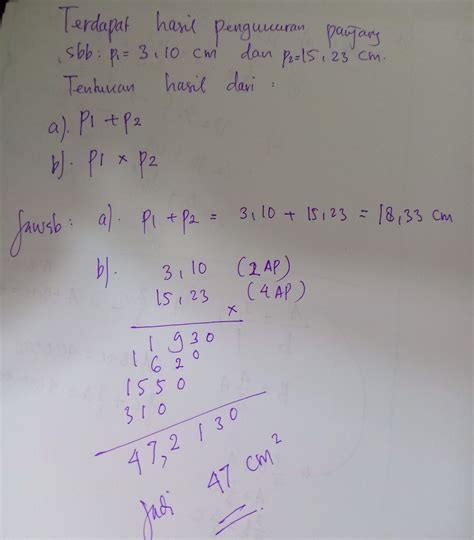 Terdapat hasil pengukuran panjang
sbb: p1 = 3,10 cm dan p2 = 15,23 cm.
Tentukan hasil dari :
a). p1 + p2
b). p1 x p2
Jawab : a). p1 + p2 = 3,10 + 15,23 = 18,33 cm
b). 3,10 (2AP)
15,23 (4AP)
x
1 930
1 6 2 0
1550
310
47,2 130
Jadi 47 cm²